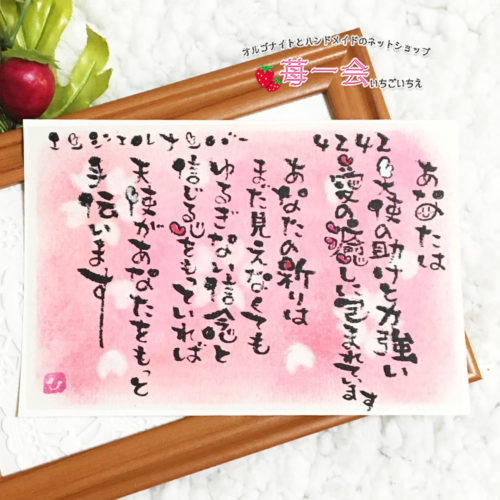 オルゴナイトとハンドメイドのネットショップ
苺一会 いちごいちえ
エンジェルナンバー 4242
あなたは
天使の助けと力強い
愛の癒しに包まれています
あなたの祈りは
まだ見えなくても
ゆるぎない信念と
信じる心をもっていれば
天使があなたをもっと
手伝います